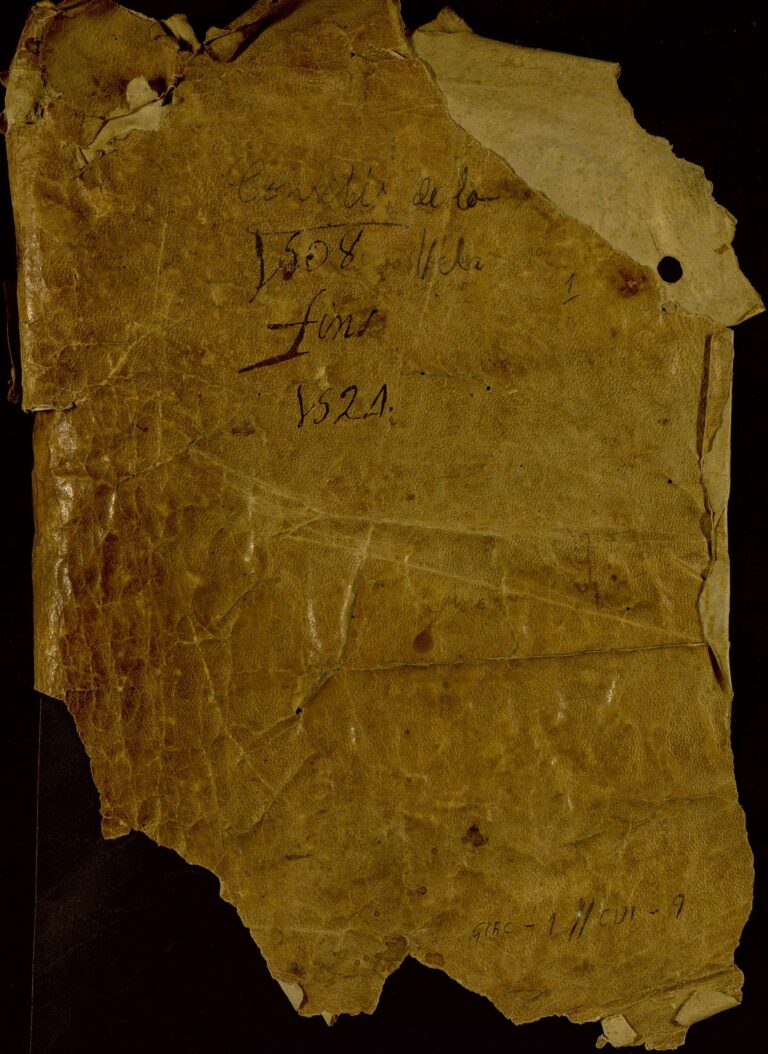 de la
1508 Vela
1
fins
1521.
GIAC - 1 // CUI - 9